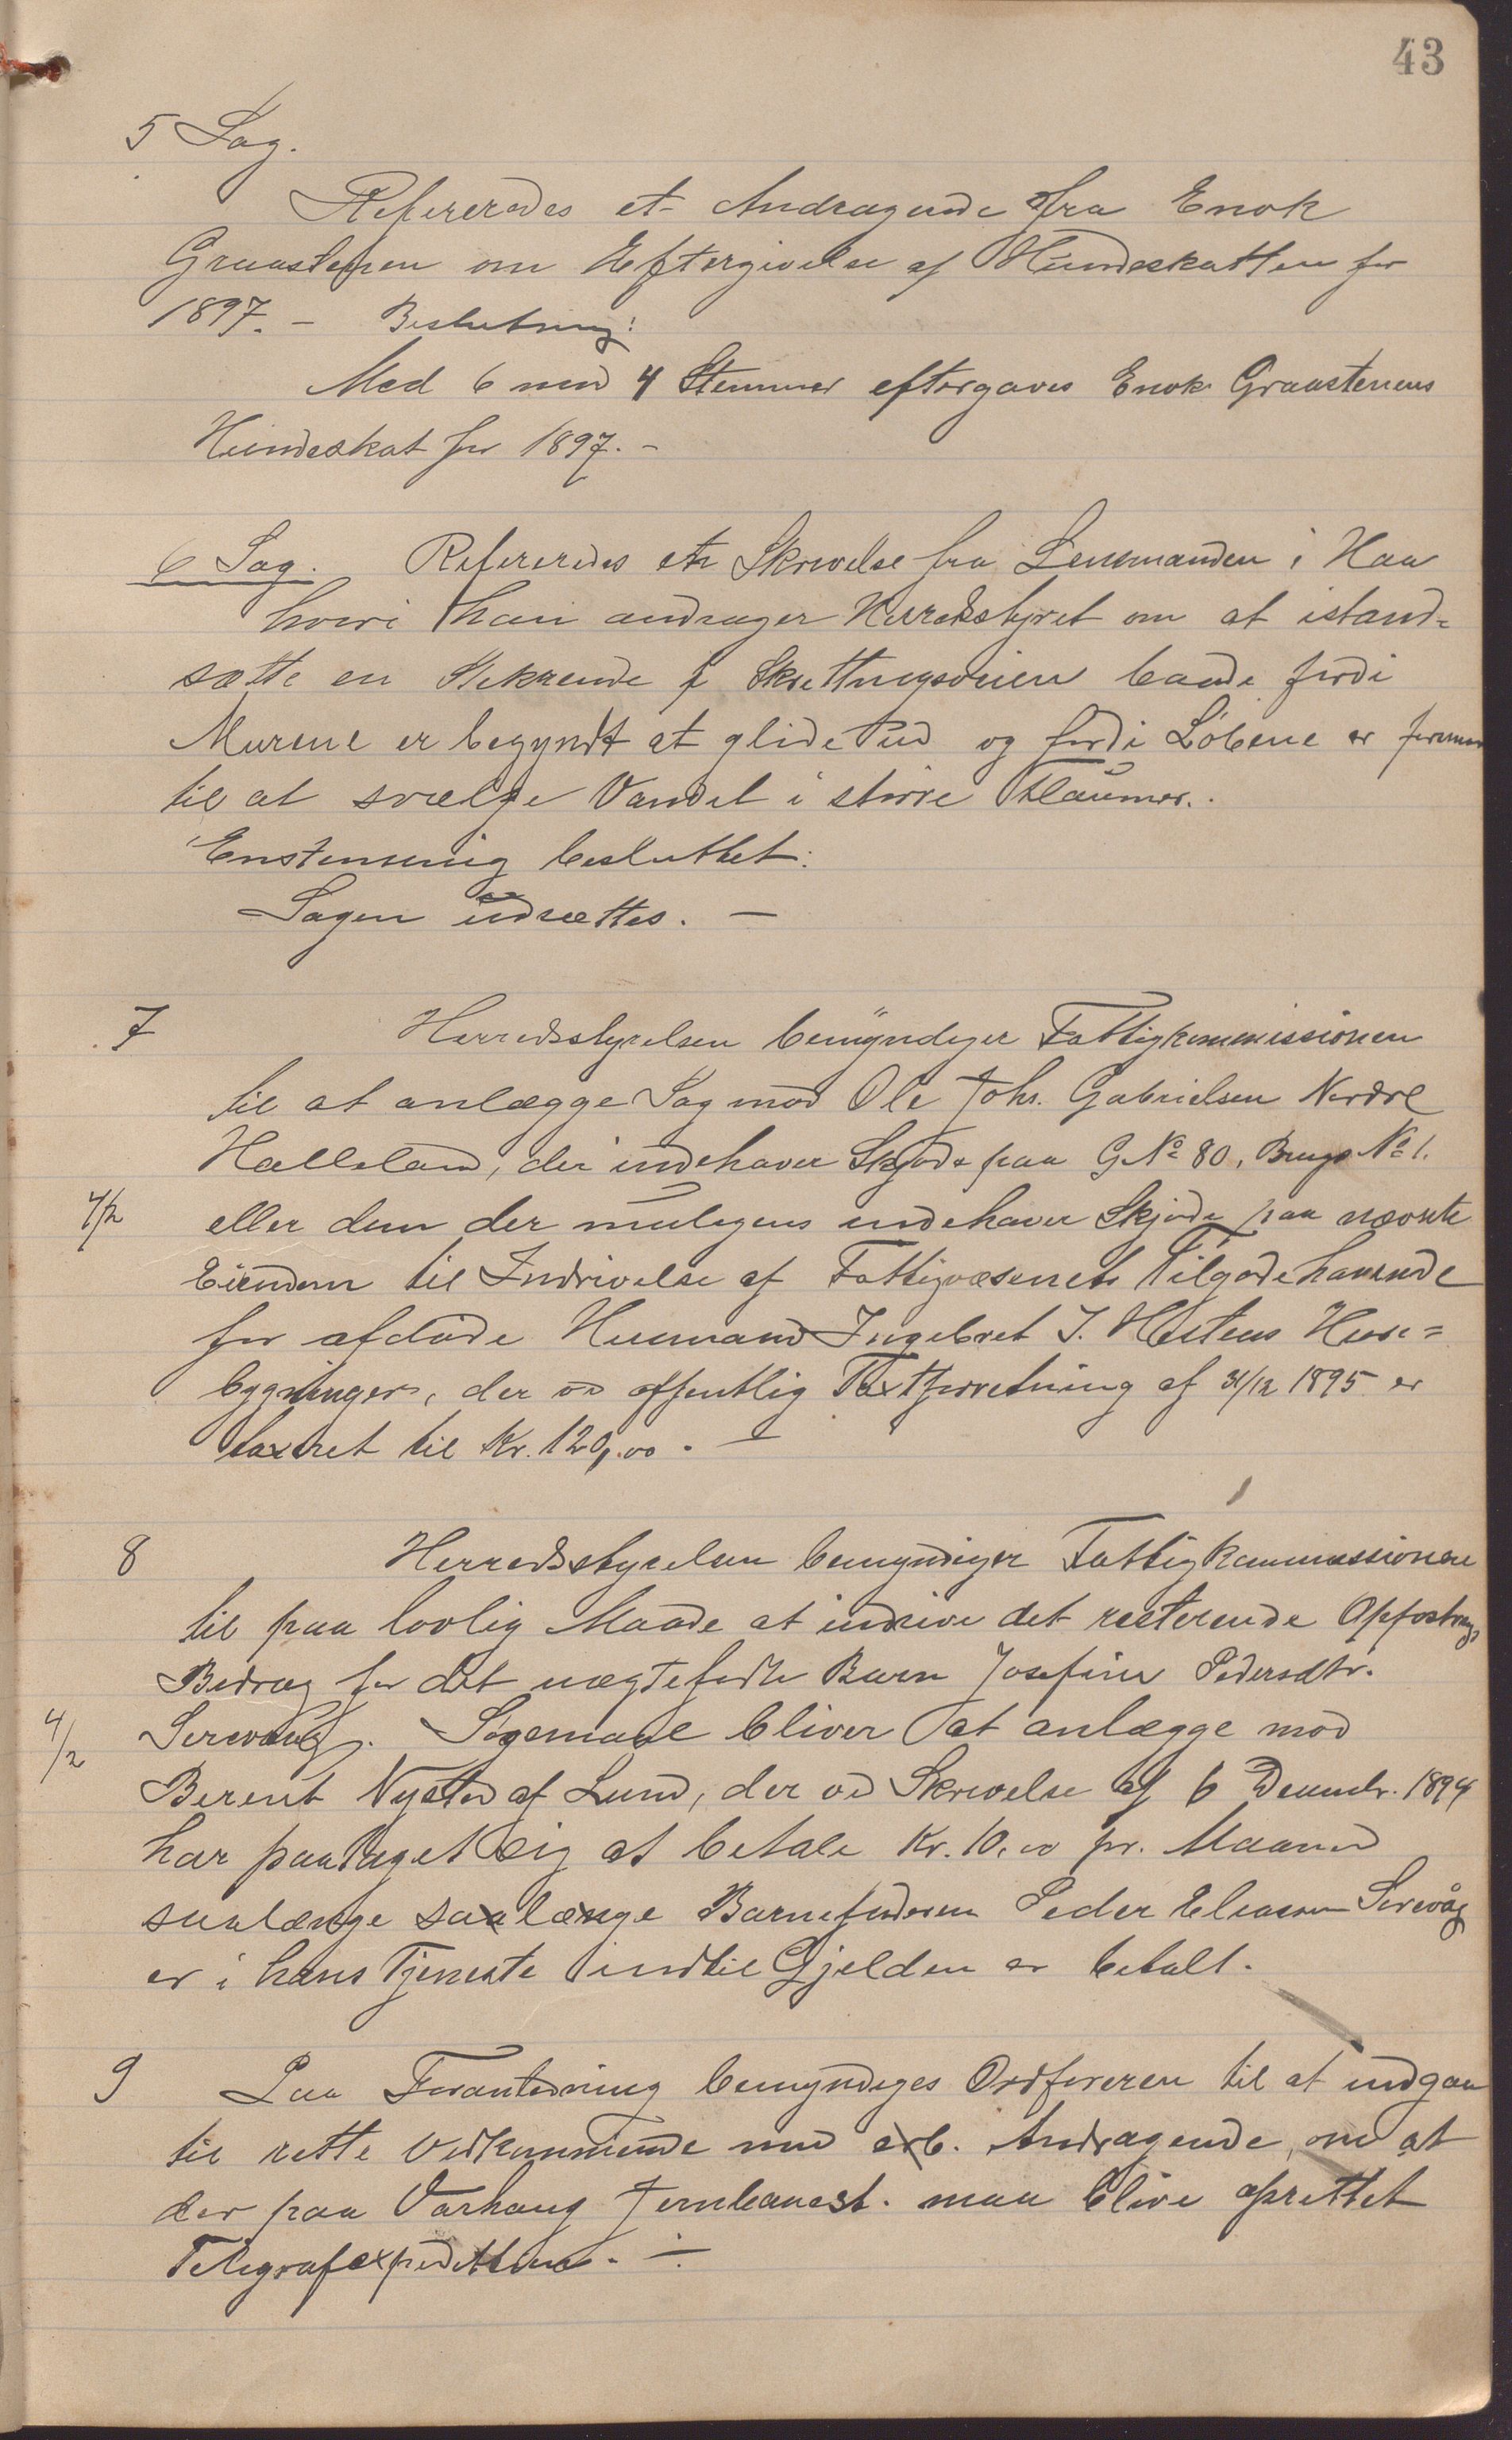 43
5 Sag.
Refereredes et Andragende fra Enok
Graastenen om Eftergivelse af Hundeskatten for
1897. – Beslutning:
Med 6 mod 4 Stemmer eftergaves Enok Graastenens
Hundeskat for 1897. –
6 Sag. Refereredes en Skrivelse fra Lensmanden i Haa
hvori han andrager Herredsstyret om at istand-
sætte en Stikrende i Skrettingsveien baade fordi
Murene er begyndt at glide ud og fordi Løbene er
til at svælge Vandet i større Flaumer.
Enstemmig besluttet:
Sagen udsættes. –
7 Herredsstyrelsen bemyndiger Fattigkommissionen
til at anlægge Sag mod Ole Johs. Gabrielsen Nordre
Hælleland, der indehaver Skjøde paa G.No 80, Brugs No 1.
4/2 eller dem der muligens indehaver Skjøde paa nævnte
Eiendom til Indrivelse af Fattigvæsenets Tilgodehavende
for afdøde Husmand Ingebret I. Huse=
bygninger, der ved offentlig Taxtforretning af 31/12 1895 er
taxeret til Kr. 120,00. –
8 Herredsstyrelsen bemyndiger Fattigkommissionen
til paa lovlig Maade at inddrive det resterende Opfostrings
Bedrag for det uægtefødte Barn Josefine Pedersdtr.
4/2 Sirevaag. Søgemaal bliver at anlægge mod
Berent Nysted af Lund, der ved Skrivelse af 6 Decembr. 1894
har paataget sig at betale Kr. 10,00 pr. Maaned
saalænge saalænge Barnefaderen Peder Eliassen Sirevåg
er i hans Tjeneste indtil Gjelden er betalt.
9 Paa Foranledning bemyndiges Ordføreren til at indgaa
til rette Vedkommende med erb. Andragende om at
der paa Varhaug Jernbanest. maa blive oprettet
Telegrafexpedition. –